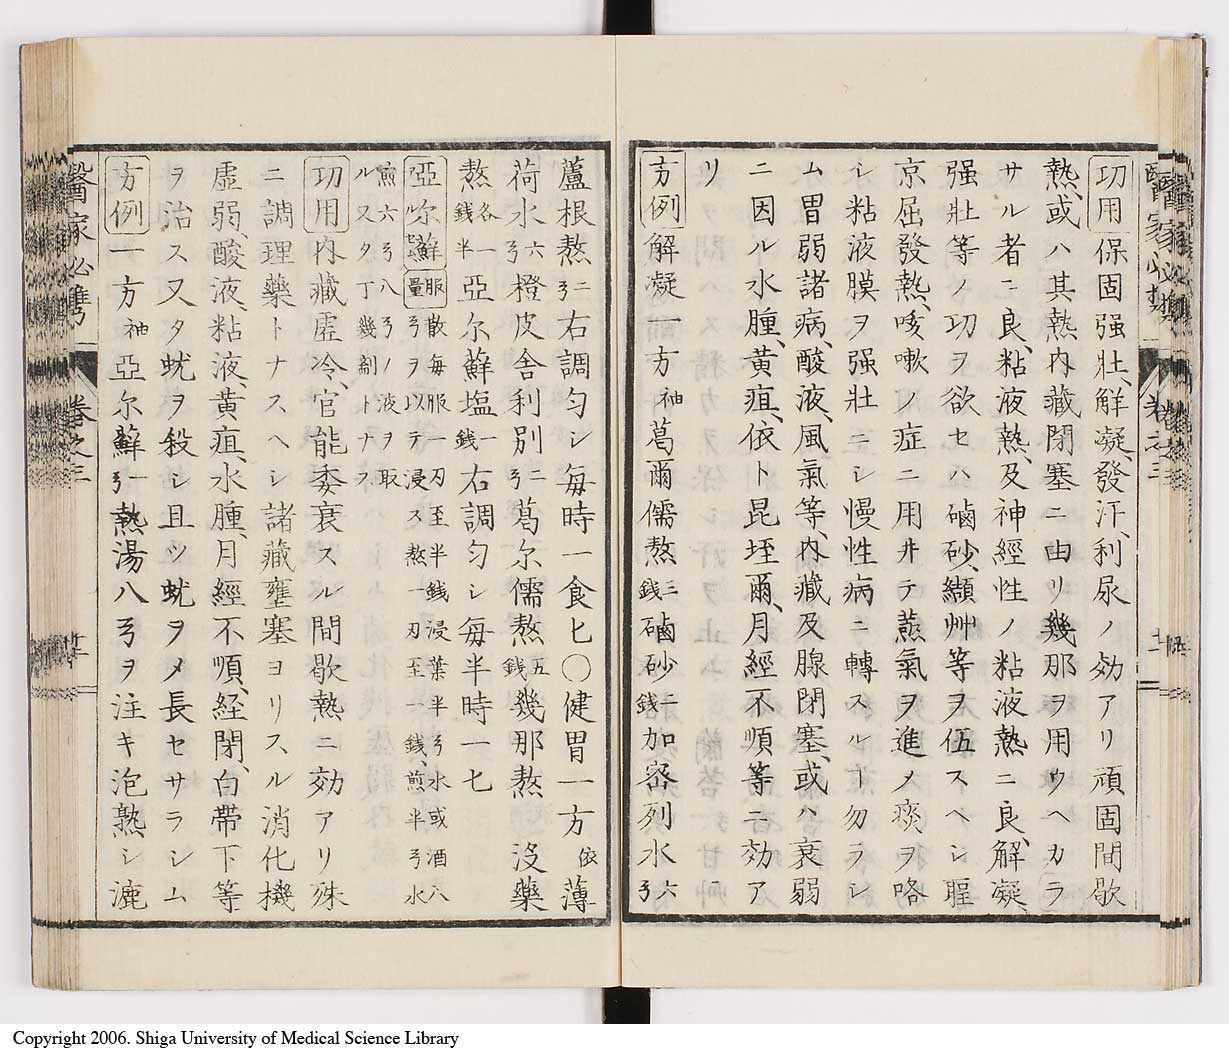 醫家必携
卷之三
功用 保固强壯、解凝、發汗、利尿ノ効アリ頑固間歇
熱、或ハ其熱、内藏閉塞ニ由リ幾那ヲ用ウヘカラ
サル者ニ良、粘液熱、及神經性ノ粘液熱ニ良、解凝、
强壯等ノ功ヲ欲セハ磠砂、纈艸等ヲ伍スヘシ
京屈發熱、咳嗽ノ症ニ用ヰテ蒸氣ヲ進メ痰ヲ咯
シ粘液膜ヲ强壯ニシ慢性病ニ轉スルヿ勿ラシ
ム胃弱諸病、酸液、風氣等、内藏及腺閉塞、或ハ衰弱
ニ因ル水腫、黄疸、依卜昆垤爾、月經不順等ニ効ア
リ
方例 解凝一方 袖 葛爾儒熬 三錢 磠砂 二錢 加密列水 六弓
蘆根熬 二弓 右調匀シ毎時一食匕〇健胃一方 依 薄
荷水 六弓 橙皮舎利別 二弓 葛尓儒熬 五錢 幾那熬 沒藥
熬 各一錢半 亞尓蘇塩 一錢 右調匀シ毎半時一七
亞尓蘇 服量 散毎服一刃至半錢浸葉半弓水或酒八
弓ヲ以テ浸ス熬一刃至一錢、煎半弓水
煎六弓八弓ノ液ヲ取
ル又タ丁幾劑トナス
功用 内藏虚冷、官能委衰スル間歇熱ニ効アリ殊
ニ調理藥トナスヘシ諸藏壅塞ヨリスル消化機
虚弱、酸液、粘液、黄疸、水腫、月經不順、経閉、白帶下等
ヲ治ス又タ蚘ヲ殺シ且ツ蚘ヲメ長セサラシム
方例 一方 袖 亞尓蘇 一弓 熱湯八弓ヲ注キ泡熟シ漉
醫家必携
卷之三
Copyright 2006. Shiga University of Medical Science Library